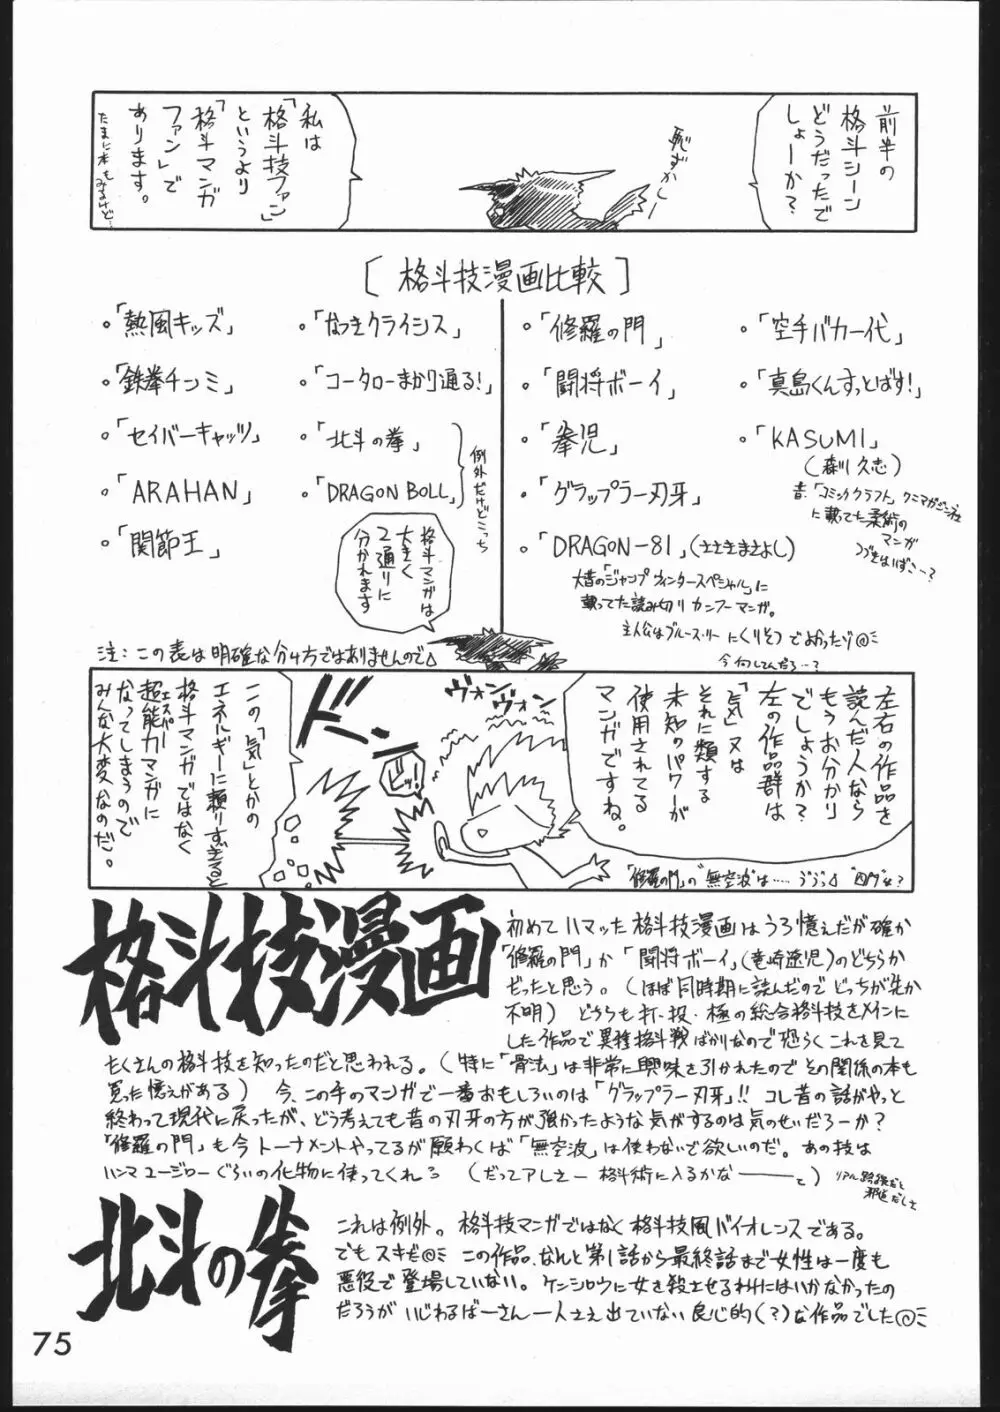 前半の
格斗シーン
どうだったで
しょーか?
恥ずかしー
私は
「格斗技ファン」
というより
「格斗マンガ
ファン」で
あります。
たまに本もみるけど…
[格斗技漫画比較]
。「熱風キッズ」
。「なつきクライシス」
。「修羅の門」
。「空手バカ一代」
。「鉄拳チンミ」
。「コータローまかり通る!」
。「闘将ボーイ」
。「真島くんすっとばす!」
。「セイバーキャッツ」
。「北斗の拳」
。「拳児」
。「KASUMI」
(森川久志)
。「ARAHAN」
。「DRAGON BOLL」
例外だけどこっち
。「グラップラー刃牙」
昔、「コミッククラフト」
に載ってた柔術の
マンガ
。「関節王」
。「DRAGON-81」(ささきまさよし)
大昔の「ジャンプウィンタースペシャル」に
載ってた読み切りカンフーマンガ。
主人公はブルース・リーにくりそつでよかったゾ
今何してんだろ…?
格斗マンガは
大きく
2通りに
分かれます
注:この表は明確な分け方ではありませんので
左右の作品を
読んだ人なら
もうお分かり
でしょうか?
左の作品群は
「気」又は
それに類する
未知のパワーが
使用されてる
マンガですね。
「修羅の門」の"無空波"は……
ヴォン
ヴォン
ドン
ビッ!
この「気」とかの
エネルギーに頼りすぎると
格斗マンガではなく
超能力マンガに
エスパー
なってしまうので
みんな大変なのだ。
格斗技漫画
初めてハマった格斗技漫画はうろ憶えだが確か
「修羅の門」か「闘将ボーイ」(竜崎遼児)のどちらか
だったと思う。(ほぼ同時期に読んだのでどっちが先か
不明) どちらも打・投・極の総合格斗技をメインに
した作品で異種格斗戦ばかりなので恐らくこれを見て
たくさんの格斗技を知ったのだと思われる。(特に「骨法」は非常に興味を引かれたのでその関係の本も
買った憶えがある) 今、この手のマンガで一番おもしろいのは「グラップラー刃牙」!! コレ昔の話がやっと
終わって現代に戻ったが、どう考えても昔の刃牙の方が強かったような気がするのは気のせいだろーか?
「修羅の門」も今トーナメントやってるが願わくば「無空波」は使わないで欲しいのだ。あの技は
ハンマユージローぐらいの化物に使ってくれ (だってアレさー格斗術に入るかなーーーと)
リアル路線だと
邪道だしさ
北斗の拳
これは例外。格斗技マンガではなく格斗技風バイオレンスである。
でもスキだ この作品、なんと第1話から最終話まで女性は一度も
悪役で登場していない。ケンシロウに女を殺させるわけにはいかなかったの
だろうがいじわるばーさん一人さえ出ていない良心的(?)な作品でした
75